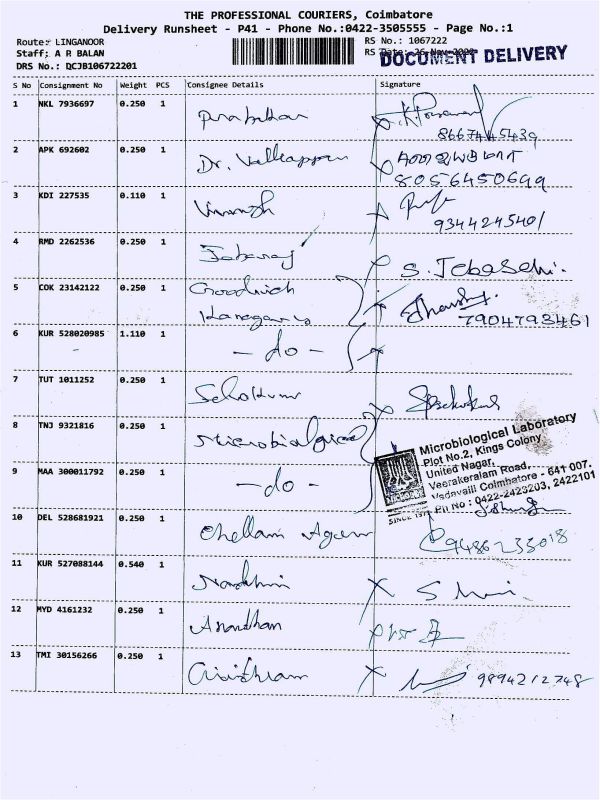 THE PROFESSIONAL COURIERS, Coimbatore
Delivery Runsheet - P41 - Phone No.:0422-3505555 - Page No.:1
Route: LINGANOOR
RS No.: 1067222
Staff: A R BALAN
RS Date: 26 Nov 2022
DOCUMENT DELIVERY
DRS No.: QCJB106722201
S No Consignment No Weight PCS Consignee Details Signature
1 NKL 7936697 0.250 1 Prabakar
8667445439
2 APK 692602 0.250 1 Dr. Valleappan
8056450699
3 KDI 227535 0.110 1
9344245401
4 RMD 2262536 0.250 1 Jebaraj S. Jebaselvi.
5 COK 23142122 0.250 1 Goodwich
7904793461
6 KUR 528020985 1.110 1 - do -
7 TUT 1011252 0.250 1
8 TNJ 9321816 0.250 1 Microbiological
Microbiological Laboratory
Plot No.2, Kings Colony
United Nagar,
Veerakeralam Road,
Vadavalli Coimbatore - 641 007.
Ph No : 0422-2423203, 2422101
SINCE
9 MAA 300011792 0.250 1 - do -
10 DEL 528681921 0.250 1 Chellam Agen
9486233018
11 KUR 527088144 0.540 1
12 MYD 4161232 0.250 1 Anandhan
13 TMI 30156266 0.250 1
9894212748